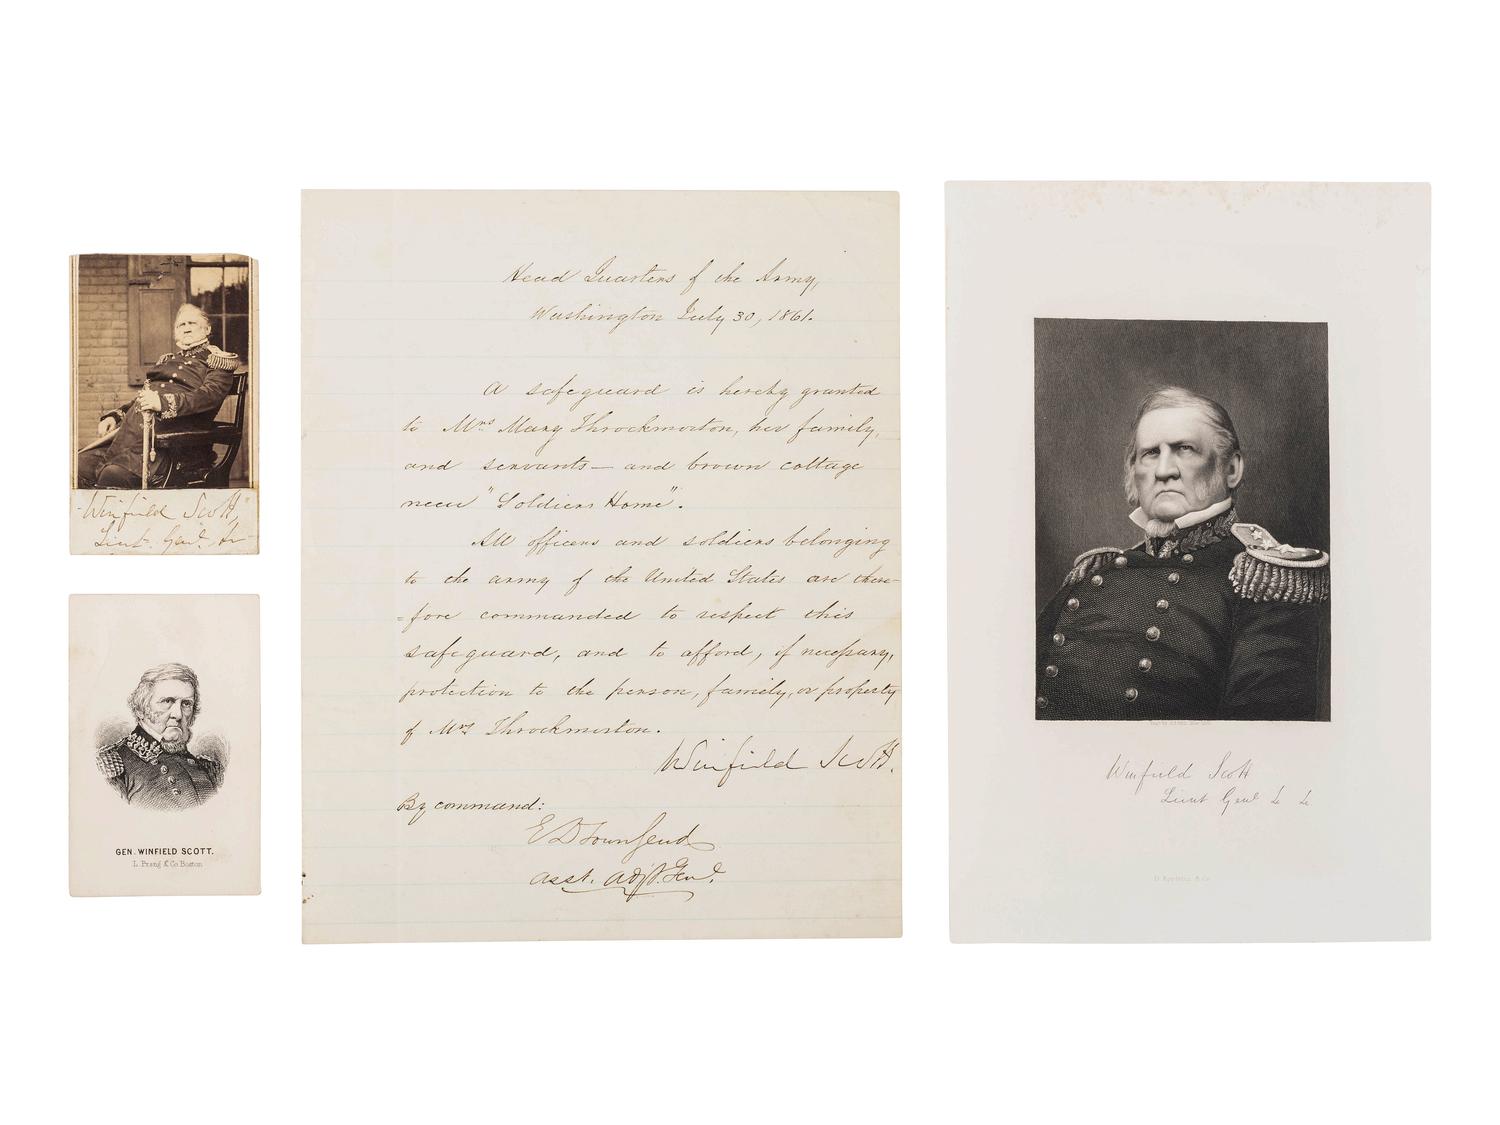 Winfield Scott,
Lieut. Genl.
GEN. WINFIELD SCOTT.
L. Prang & Co. Boston
Head Quarters of the Army,
Washington July 30, 1861.
A safeguard is hereby granted
to Mrs Mary Throckmorton, her family,
and servants — and brown cottage
near "Soldiers Home".
All officers and soldiers belonging
to the army of the United States are there-
=fore commanded to respect this
safeguard, and to afford, if necessary,
protection to the person, family, or property
of Mrs Throckmorton.
Winfield Scott.
By command:
E D Townsend
Asst. Adjt. Genl.
Winfield Scott
Lieut Genl
D. Appleton & Co